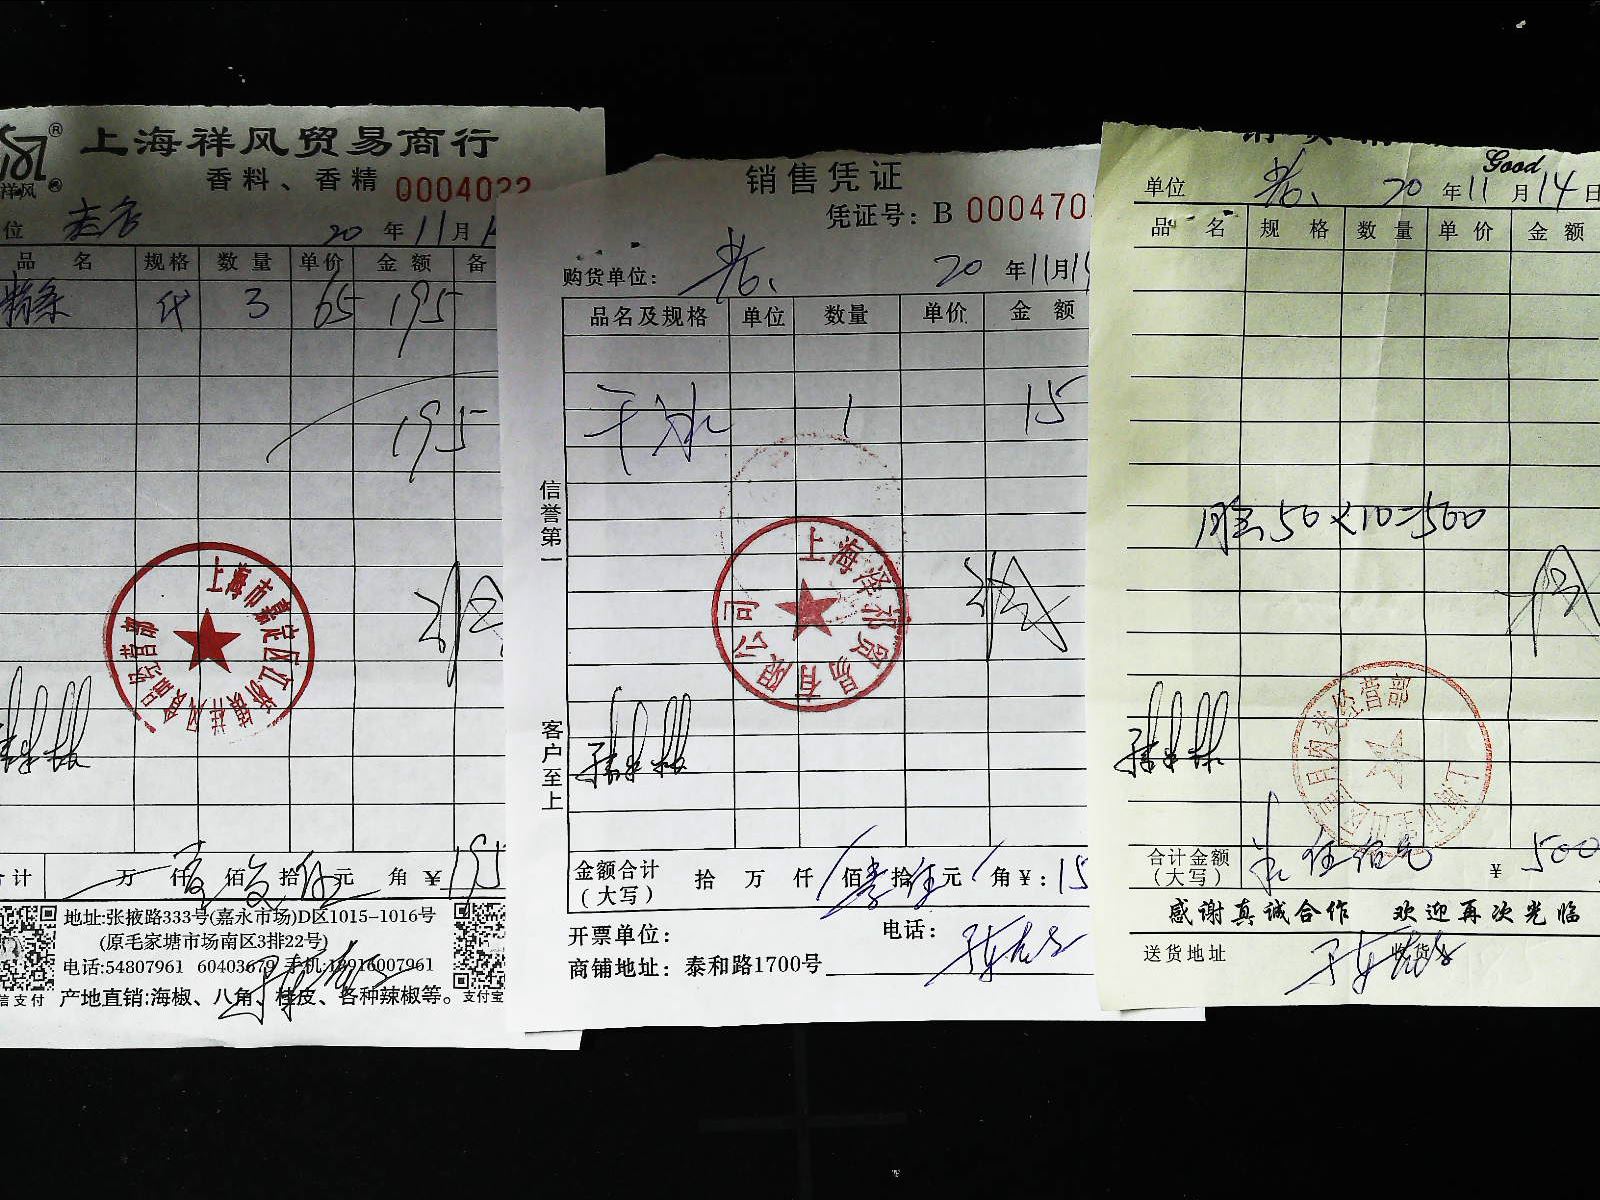 上海祥风贸易商行
祥风
香料、香精 0004022
位 老店 20 年 11 月
品 名 规格 数量 单价 金额 备
粉条 代 3 65 195
195
上海市嘉定区江桥镇祥风食品经营部
计 万 仟 壹佰 玖拾 伍元 角 ¥ 195
地址:张掖路333号(嘉永市场)D区1015-1016号
(原毛家塘市场南区3排22号)
电话:54807961 60403679 手机:18916007961
产地直销:海椒、八角、桂皮、各种辣椒等。
信支付 支付宝
销售凭证
凭证号: B 000470
购货单位: 20 年 11 月 14
品名及规格 单位 数量 单价 金额
干冰 1 15
信誉第一
客户至上
上海泽祁贸易有限公司
金额合计 拾 万 仟 佰 壹拾 伍元 角 ¥: 15
(大写)
开票单位: 电话:
商铺地址: 泰和路1700号
Good
单位 20 年 11 月 14 日
品 名 规 格 数 量 单 价 金 额
50×10=500
合计金额 伍佰元 ¥ 500
(大写)
感谢真诚合作 欢迎再次光临
送货地址 收货